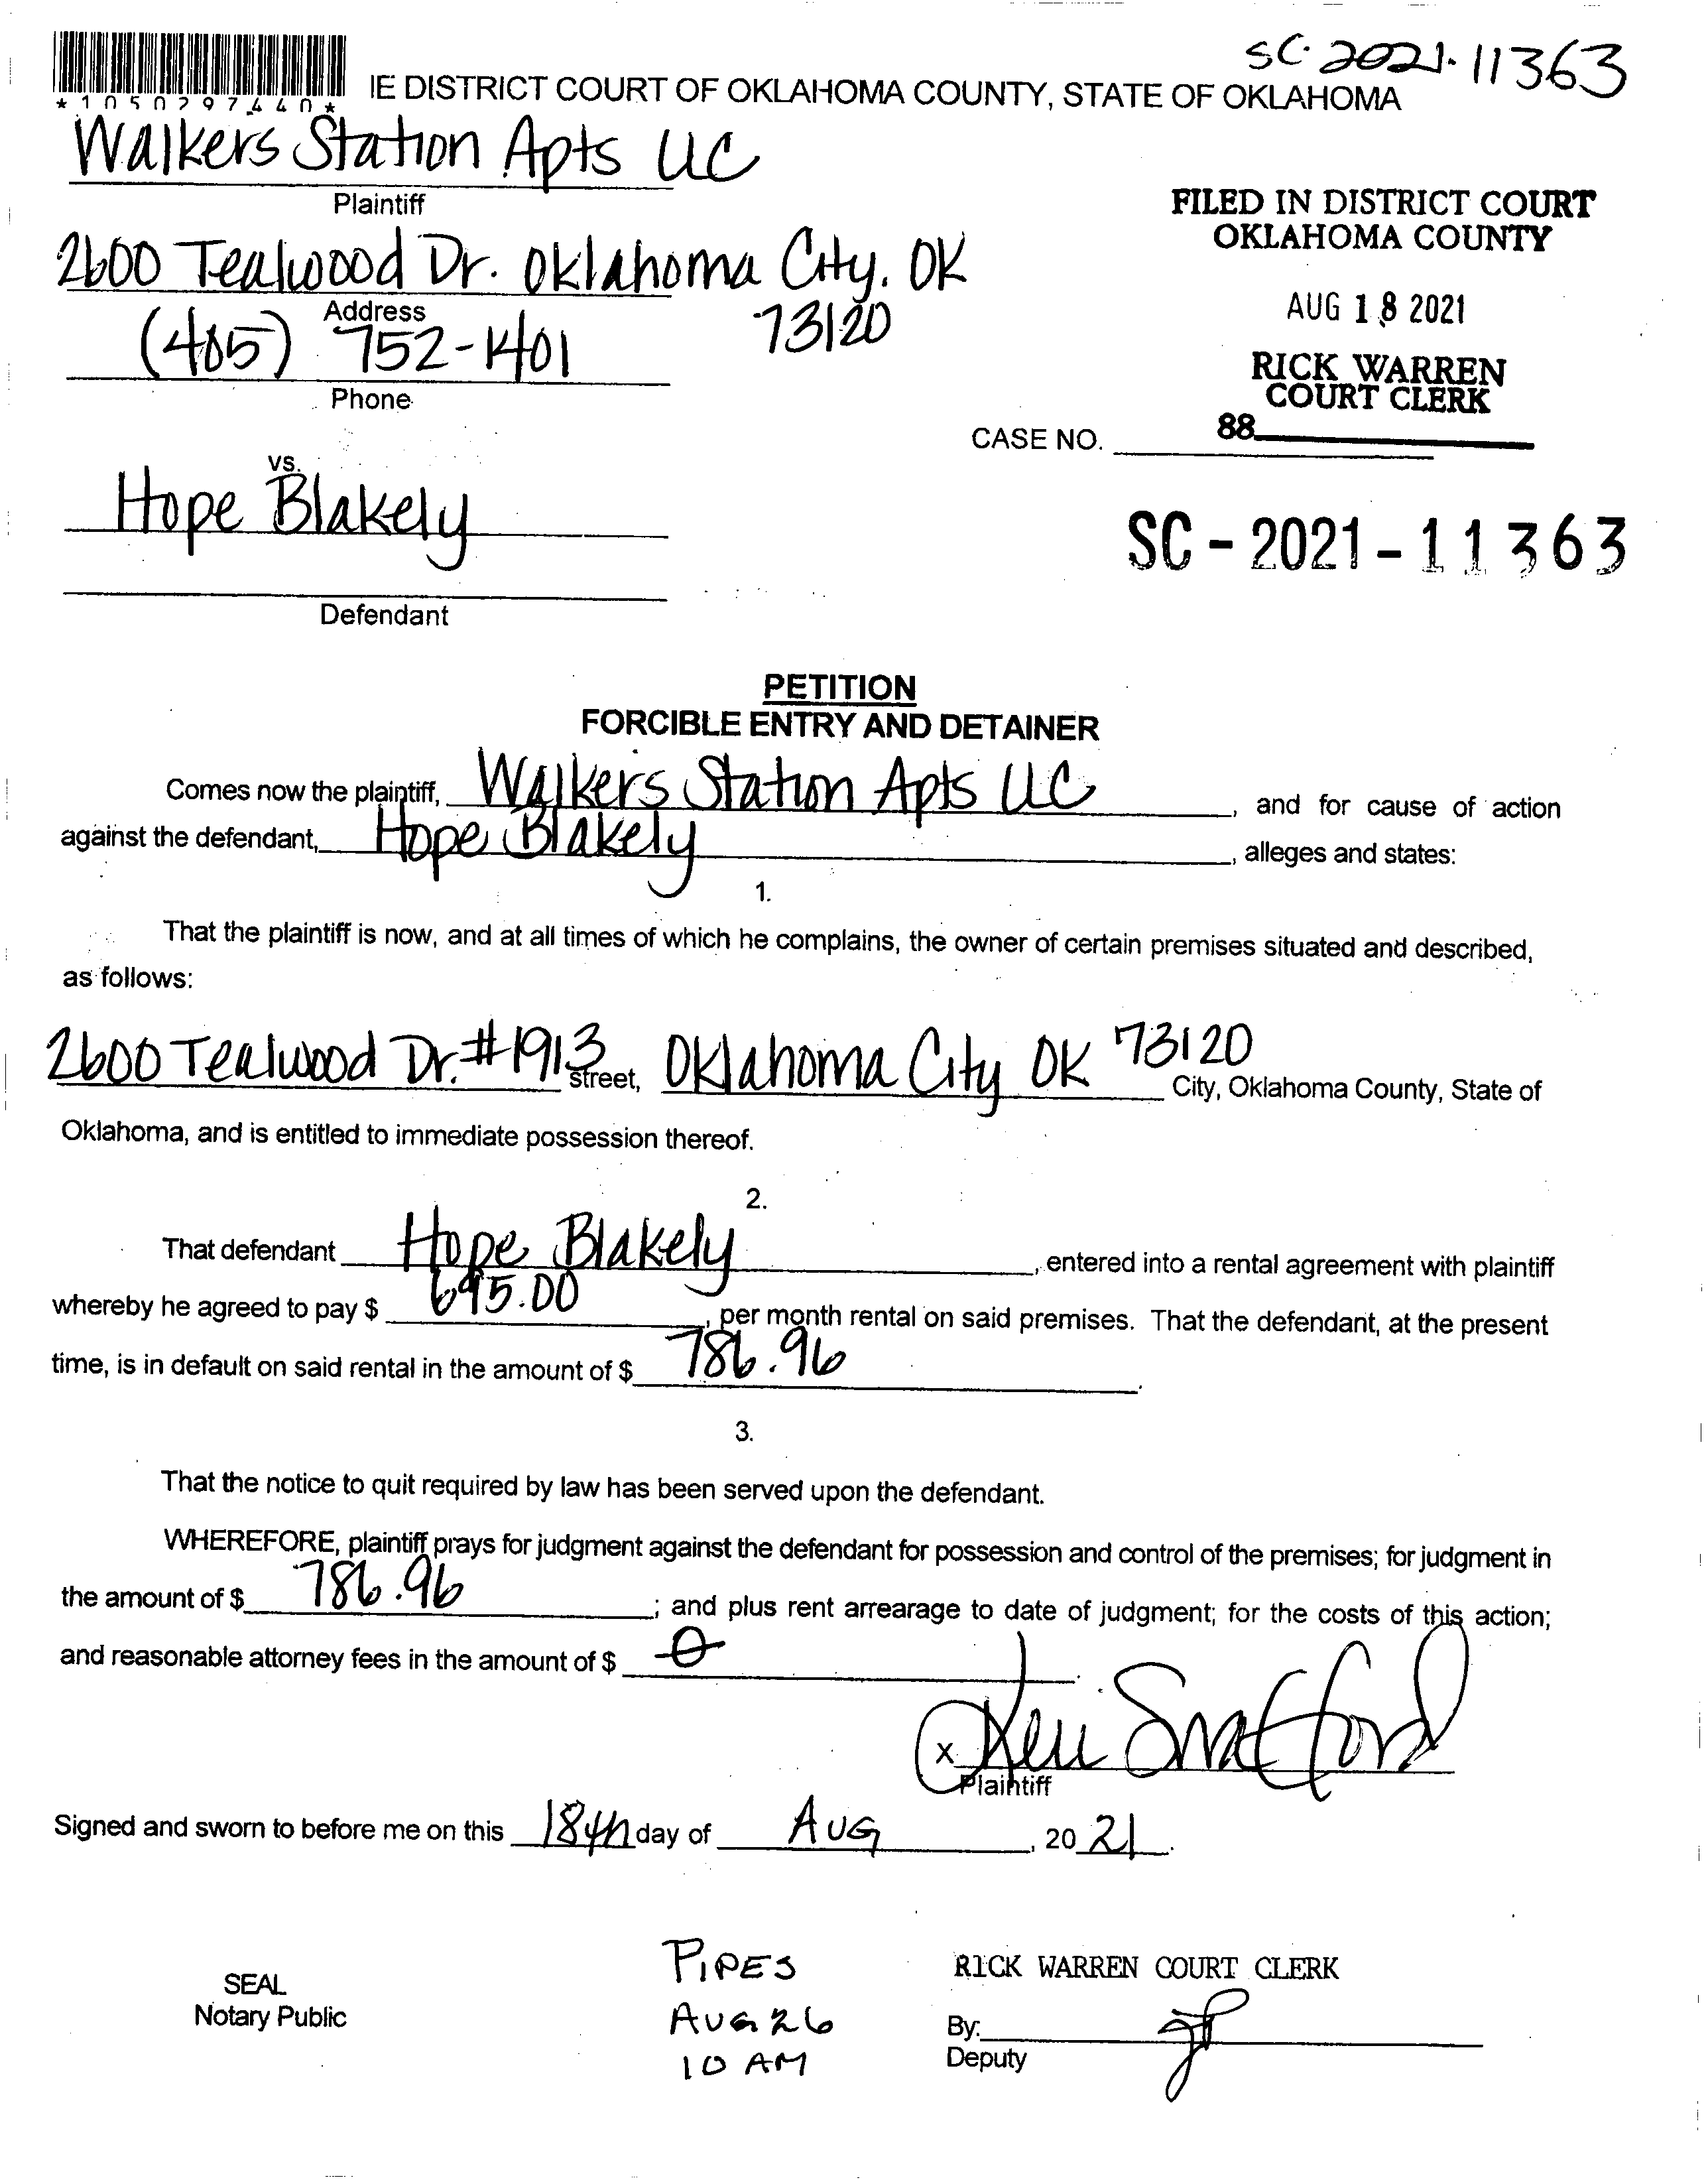 SC-2021-11363
*1050297440*
IE DISTRICT COURT OF OKLAHOMA COUNTY, STATE OF OKLAHOMA
Walkers Station Apts LLC
Plaintiff
FILED IN DISTRICT COURT
OKLAHOMA COUNTY
2600 Tealwood Dr. Oklahoma City, OK
73120
Address
AUG 18 2021
(405) 752-1401
Phone
RICK WARREN
COURT CLERK
88
CASE NO.
vs.
Hope Blakely
SC-2021-11363
Defendant
PETITION
FORCIBLE ENTRY AND DETAINER
Comes now the plaintiff, Walkers Station Apts LLC, and for cause of action
against the defendant, Hope Blakely, alleges and states:
1.
That the plaintiff is now, and at all times of which he complains, the owner of certain premises situated and described,
as follows:
2600 Tealwood Dr. #1913 street, Oklahoma City OK 73120 City, Oklahoma County, State of
Oklahoma, and is entitled to immediate possession thereof.
2.
That defendant Hope Blakely, entered into a rental agreement with plaintiff
whereby he agreed to pay $ 695.00, per month rental on said premises. That the defendant, at the present
time, is in default on said rental in the amount of $ 786.96.
3.
That the notice to quit required by law has been served upon the defendant.
WHEREFORE, plaintiff prays for judgment against the defendant for possession and control of the premises; for judgment in
the amount of $ 786.96; and plus rent arrearage to date of judgment; for the costs of this action;
and reasonable attorney fees in the amount of $ 0.
x
Plaintiff
Signed and sworn to before me on this 18th day of Aug, 2021.
SEAL
Notary Public
PIPES
AUG 26
10 AM
RICK WARREN COURT CLERK
By:
Deputy